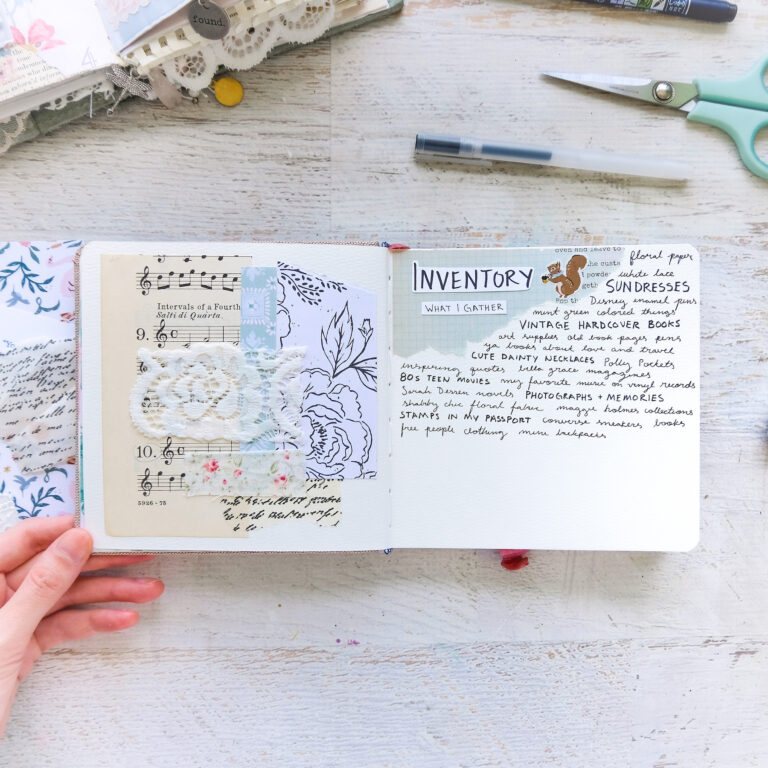 found.
4
Intervals of a Fourth
Salti di Quarta.
9.
10.
5926 - 75
oven and leave to
the custa
powde
geth
Pop th
INVENTORY
WHAT I GATHER
floral paper
white lace
SUNDRESSES
Disney enamel pens
mint green colored things
VINTAGE HARDCOVER BOOKS
art supplies old book pages pens
ya books about love and travel
CUTE DAINTY NECKLACES Polly Pockets
inspiring quotes bella grace magazines
80S TEEN MOVIES my favorite music on vinyl records
Sarah Dessen novels PHOTOGRAPHS + MEMORIES
shabby chic floral fabric maggie holmes collections
STAMPS IN MY PASSPORT converse sneakers books
free people clothing mini backpacks